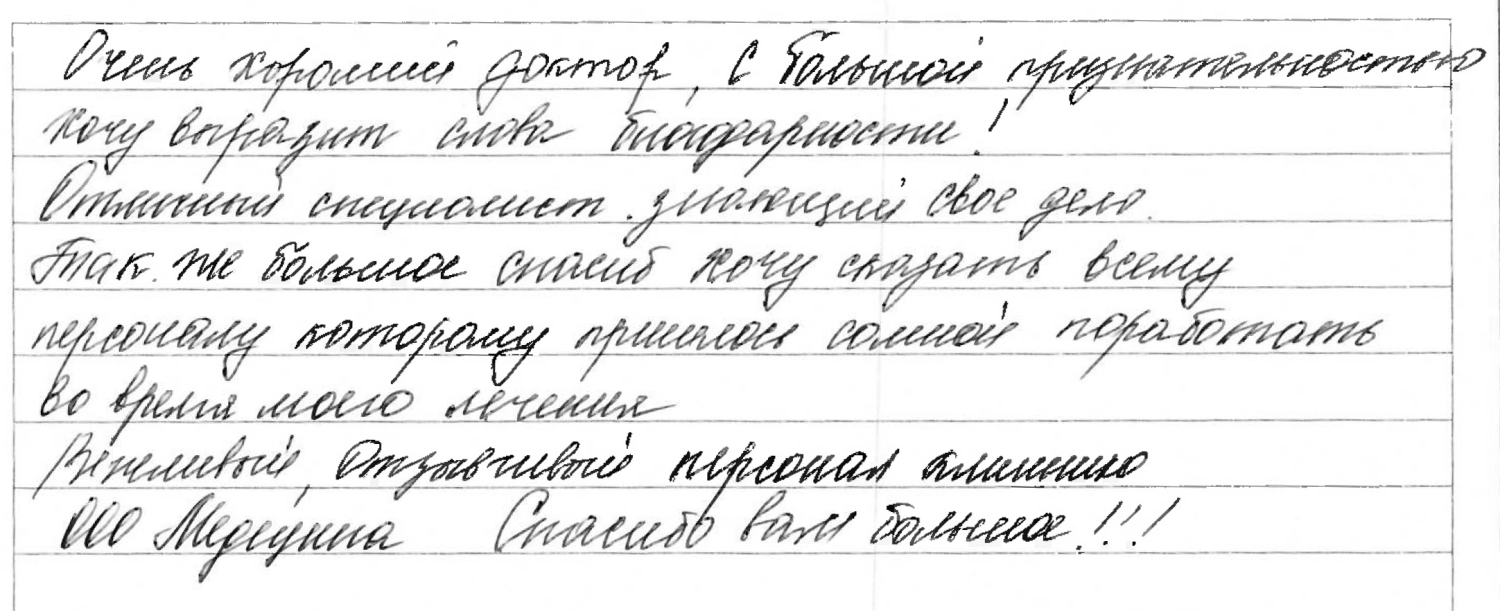 Очень хороший доктор, С большой признательностью
хочу выразит слова благодарности!
Отличный специалист. знающий свое дело.
Так же большое спасиб хочу сказать всему
персоналу которому пришлось сомной поработать
во время моего лечения
Вежливый, отзывчивый персонал клиники
ООО Медецина Спасибо вам большое!!!